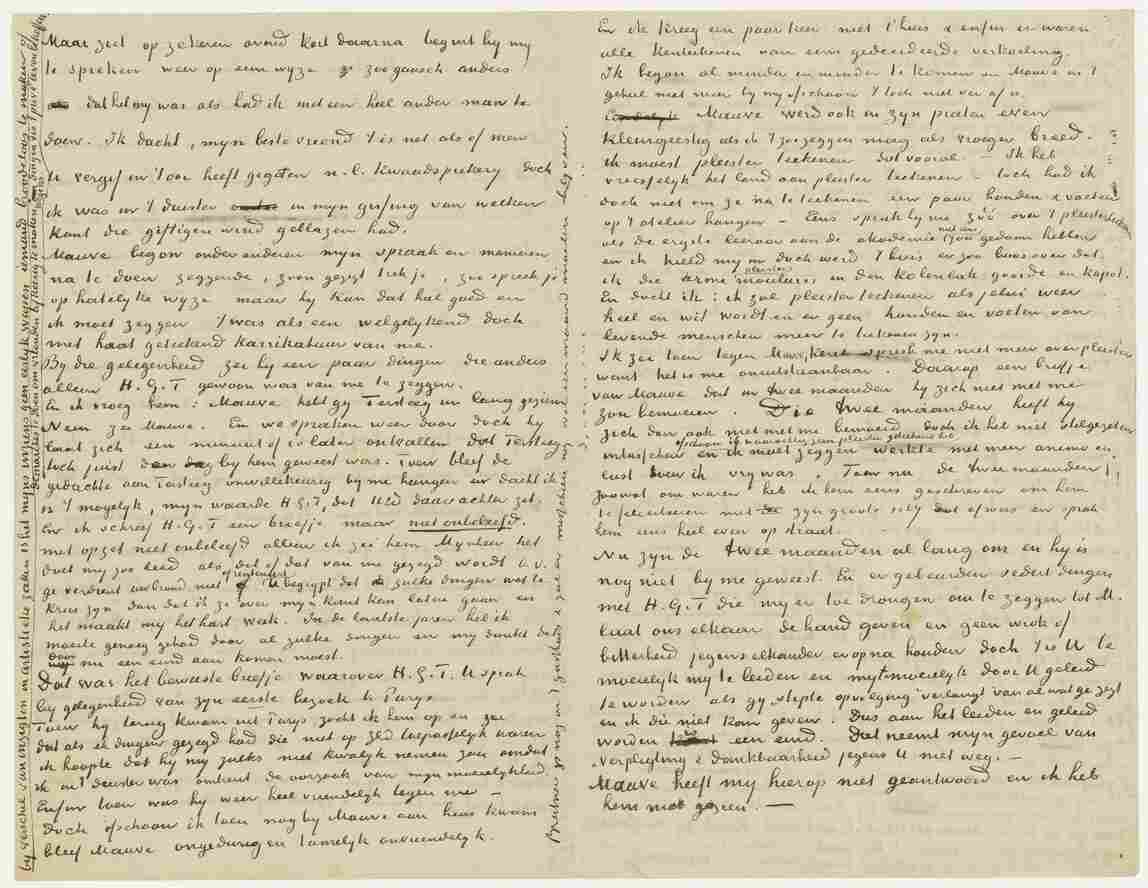 Maar ziet op zekeren avond kort daarna begint hy my
te spreken weer op een wyze zoo gansch anders
dat het my was als had ik met een heel ander man te
doen. Ik dacht, myn beste vriend 't is net als of men
U vergif in 't oor heeft gegoten n.l. kwaadsprekery doch
ik was in 't duister en myn gissing van welken
kant die giftigen wind geblazen had.
Mauve begon onder anderen myn spraak en manieren
na te doen zeggende, zoon gezigt trek je, zoo spreek je
op hatelyke wyze maar hy kan dat heel goed en
ik moet zeggen 't was als een welgelykend doch
met haat geteekend karrikatuur van me.
By die gelegenheid zei hy een paar dingen die anders
alleen H.G.T gewoon was van me te zeggen.
En ik vroeg hem: Mauve hebt gy Tersteeg in lang gezien
Neen zei Mauve. En we spraken weer door doch hy
laat zich een minuut of 10 later ontvallen dat Tersteeg
toch juist dien dag by hem geweest was. Toen bleef de
gedachte aan Tersteeg onwillekeurig by me hangen en dacht ik
is 't mogelyk, myn waarde H.G.T, dat U er daar achter zit.
En ik schreef H.G.T een briefje maar niet onbeleefd.
met opzet niet onbeleefd alleen ik zei hem Mynheer het
doet my zoo leed als dat of dat van me gezegd wordt b.v.
ge verdient uw brood niet of ge rentenieert U begrypt dat zulke dingen wat te
kras zyn dan dat ik ze over myn kant kan laten gaan en
het maakt my het hart week. In de laatste jaren heb ik
moeite genoeg gehad door al zulke dingen en my dunkt dat
daar nu een eind aan komen moest.
Dat was het bewuste briefje waarover H.G.T. U sprak
by gelegenheid van zyn eerste bezoek te Parys
Toen hy terug kwam uit Parys zocht ik hem op en zei
dat als ik dingen gezegd had die niet op ZEd toepasselyk waren
ik hoopte dat hy my zulks niet kwalyk nemen zou omdat
ik in 't duister was omtrent de oorzaak van myn moeielykheid.
Enfin toen was hy weer heel vriendelyk tegen me –
Doch ofschoon ik toen nog by Mauve aan huis kwam
bleef Mauve ongedurig en tamelyk onvriendelyk.
En ik kreeg een paar keer niet t'huis & enfin er waren
alle kenteekenen van eene gedecideerde verkoeling.
Ik begon al minder en minder te komen en Mauve is 't
geheel niet meer by my ofschoon 't toch niet ver af is.
Mauve werd ook in zyn praten even
kleingeestig als ik 't zoo zeggen mag als vroeger breed.
ik moest pleister teekenen dat vooral. – Ik heb
vreesselyk het land aan pleister teekenen – toch had ik
doch niet om ze na te teekenen een paar handen & voeten
op 't atelier hangen – Eens sprak hy me zóó over 't pleisterteekenen
als de ergste leeraar aan de akademie niet eens zou gedaan hebben
en ik hield my in doch werd t'huis er zoo boos over dat
ik die arme pleister moulures in den kolenbak gooide en kapot.
En dacht ik: ik zal pleister teekenen als jelui weer
heel en wit wordt en er geen handen en voeten van
levende menschen meer te teekenen zyn.
Ik zei toen tegen Mauve, kerel spreek me niet meer over pleister
want het is me onuitstaanbaar. Daarop een briefje
van Mauve dat in twee maanden hy zich niet met me
zou bemoeien. Die twee maanden heeft hy
zich dan ook niet met me bemoeid doch ik heb niet stilgezeten
intusschen ofschoon ik waarachtig geen pleister geteekend heb en ik moet zeggen werkte met meer animo en
lust toen ik vry was. Toen nu de twee maanden
zoowat om waren heb ik hem eens geschreven om hem
te feliciteeren met zyn groote schy dat af was en sprak
hem eens heel even op straat.
Nu zyn de twee maanden al lang om en hy is
nog niet by me geweest. En er gebeurden sedert dingen
met H.G.T die my er toe drongen om te zeggen tot M.
laat ons elkaar de hand geven en geen wrok of
bitterheid jegens elkander er op na houden doch 't is U te
moeielyk my te leiden en my te moeielyk door U geleid
te worden als gy "stipte opvolging" verlangt van al wat ge zegt
en ik die niet kan geven. Dus aan het leiden en geleid
worden is een eind. Dat neemt myn gevoel van
verpligting & dankbaarheid jegens U niet weg. –
Mauve heeft my hierop niet geantwoord en ik heb
hem niet gezien. –